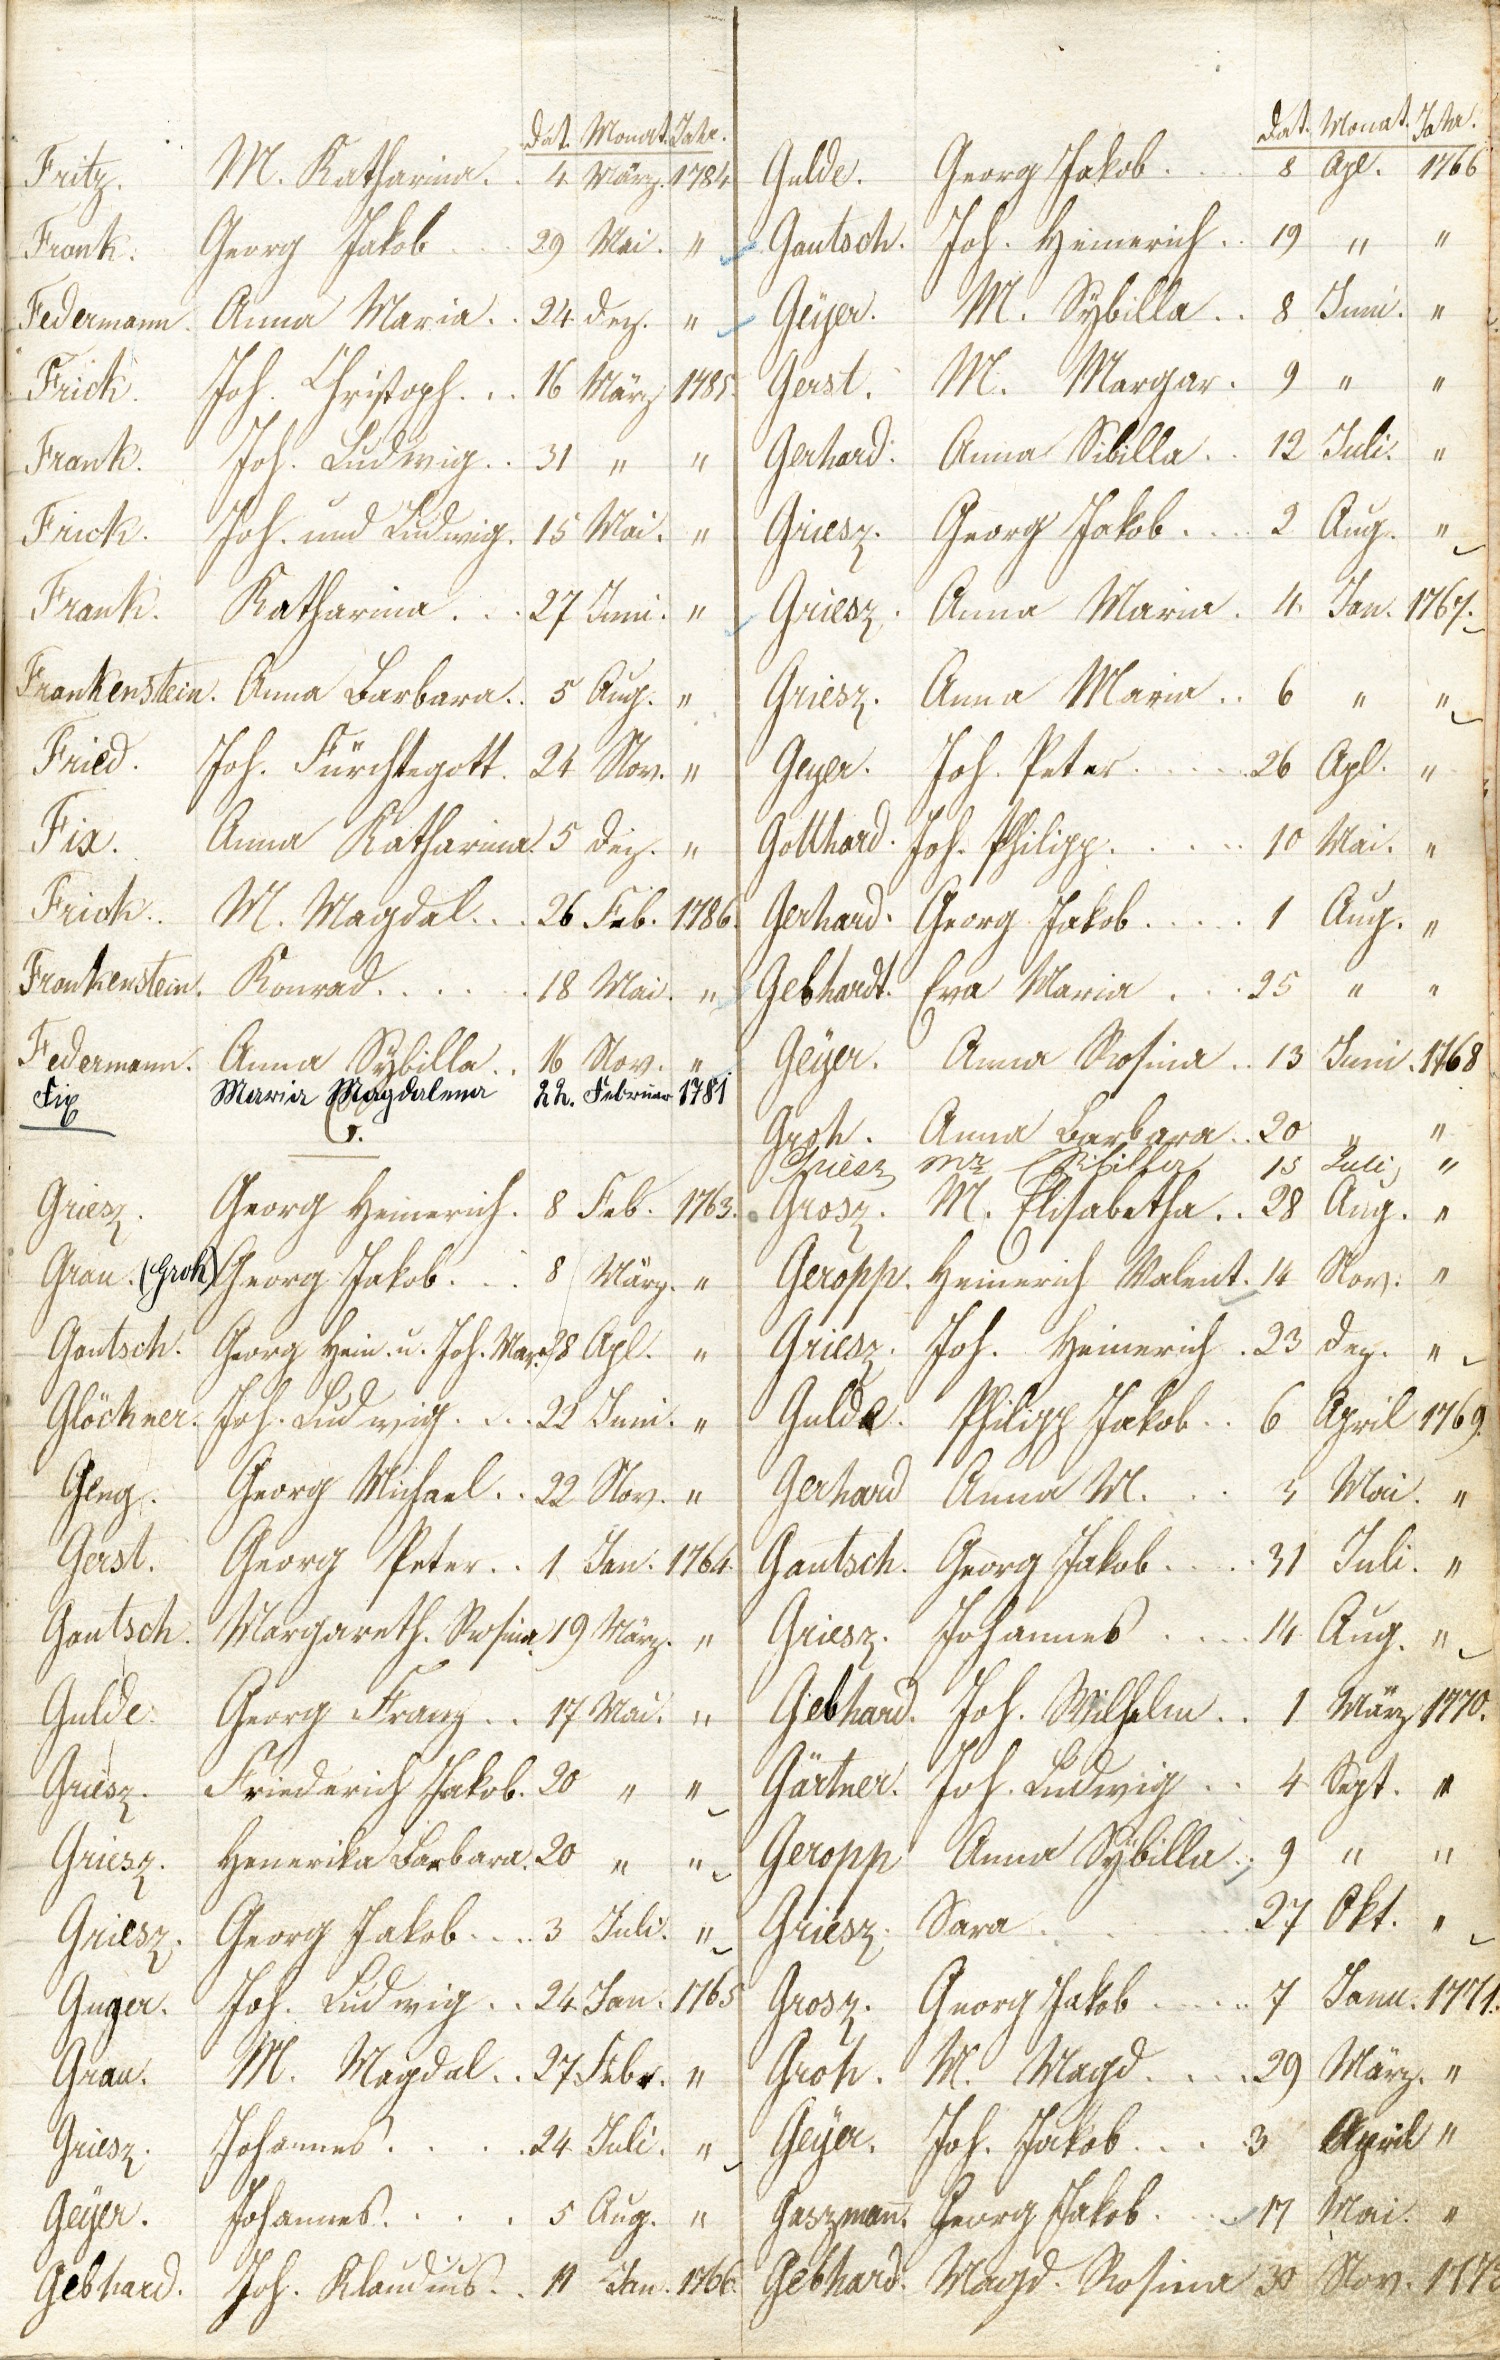 Dat. Monat. Jahr.
Fritz. M. Katharina. . 4 März. 1784
Frank. Georg Jakob . . . 29 Mai. "
Federmann. Anna Maria. . 24 Dez. "
Frick. Joh. Christoph. . . 16 März 1785.
Frank. Joh. Ludwig. . 31 " "
Frick. Joh. und Ludwig. 15 Mai. "
Frank. Katharina . . . 27 Juni. "
Frankenstein. Anna Barbara. . 5 Aug. "
Fried. Joh. Fürchtegott. 24 Nov. "
Fix. Anna Katharina. 5 Dez. "
Frick. . M. Magdal. . . 26 Feb. 1786.
Frankenstein. Konrad. . . . . . 18 Mai. "
Federmann. Anna Sybilla. . 16 Nov. "
Fix Maria Magdalena 22. Februar 1781
G.
Griesz. Georg Heinerich. 8 Feb. 1763.
Grau. (Groh) Georg Jakob. . . 8 März. "
Gautsch. Georg Hein. u. Joh. Mar. 28 Apl. "
Glöckner. Joh. Ludwig. . . . 22 Juni. "
Geng. Georg Michael. . 22 Nov. "
Gerst. Georg Peter. . 1 Jan. 1764.
Gautsch. Margareth. Rosina. 19 März. "
Gulde. Georg Franz . . 17 Mai. "
Griesz. Friederich Jakob. 20 " "
Griesz. Henerika Barbara. 20 " "
Griesz. Georg Jakob. . . . 3 Juli. "
Guger. Joh. Ludwig . . 24 Jan. 1765
Grau. M. Magdal. . 27 Febr. "
Griesz. Johannes. . . . . 24 Juli. "
Geÿer. Johannes. . . . . 5 Aug. "
Gebhard. Joh. Klaudius. . 11 Jan. 1766.
Dat. Monat. Jahr.
Gulde. Georg Jakob. . . . 8 Apl. 1766
Gautsch. Joh. Heinerich. . 19 " "
Geÿer. M. Sÿbilla . . 8 Juni. "
Gerst. M. Margar. 9 " "
Gerhard. Anna Sibilla . . 12 Juli. "
Griesz. Georg Jakob. . . . 2 Aug. "
Griesz. Anna Maria. 4. Jan. 1767.
Griesz. Anna Maria . . 6 " "
Geyer. Joh. Peter . . . . . 26 Apl. "
Gotthard. Joh. Philipp. . . . . . 10 Mai. "
Gerhard. Georg Jakob. . . . . 1 Aug. "
Gebhardt. Eva Maria . . . 25 " "
Geÿer. Anna Rosina . . 13 Juni. 1768
Groh. Anna Barbara. . 20 " "
Griesz Mr Sibilla 15 Juli "
Grosz. M. Elisabetha. . 28 Aug. "
Geropp. Heinerich Valent. 14 Nov. "
Griesz. Joh. Heinerich . 23 Dez. "
Gulde. Philipp Jakob. . 6 April 1769.
Gerhard Anna M. . . 3 Mai. "
Gautsch. Georg Jakob. . . . 31 Juli. "
Griesz. Johannes . . . . 14 Aug. "
Gebhard. Joh. Wilhelm. . 1 März 1770.
Gärtner. Joh. Ludwig . . 4 Sept. "
Geropp Anna Sÿbilla. . 9 " "
Griesz. Sara . . . . . 27 Okt. "
Grosz. Georg Jakob . . . . 7 Janu. 1771.
Groh. M. Magd. . . . 29 März. "
Geÿer. Joh. Jakob. . . . 3 April "
Gaszmann. Georg Jakob. . . 17 Mai. "
Gebhard. Magd. Rosina 30 Nov.